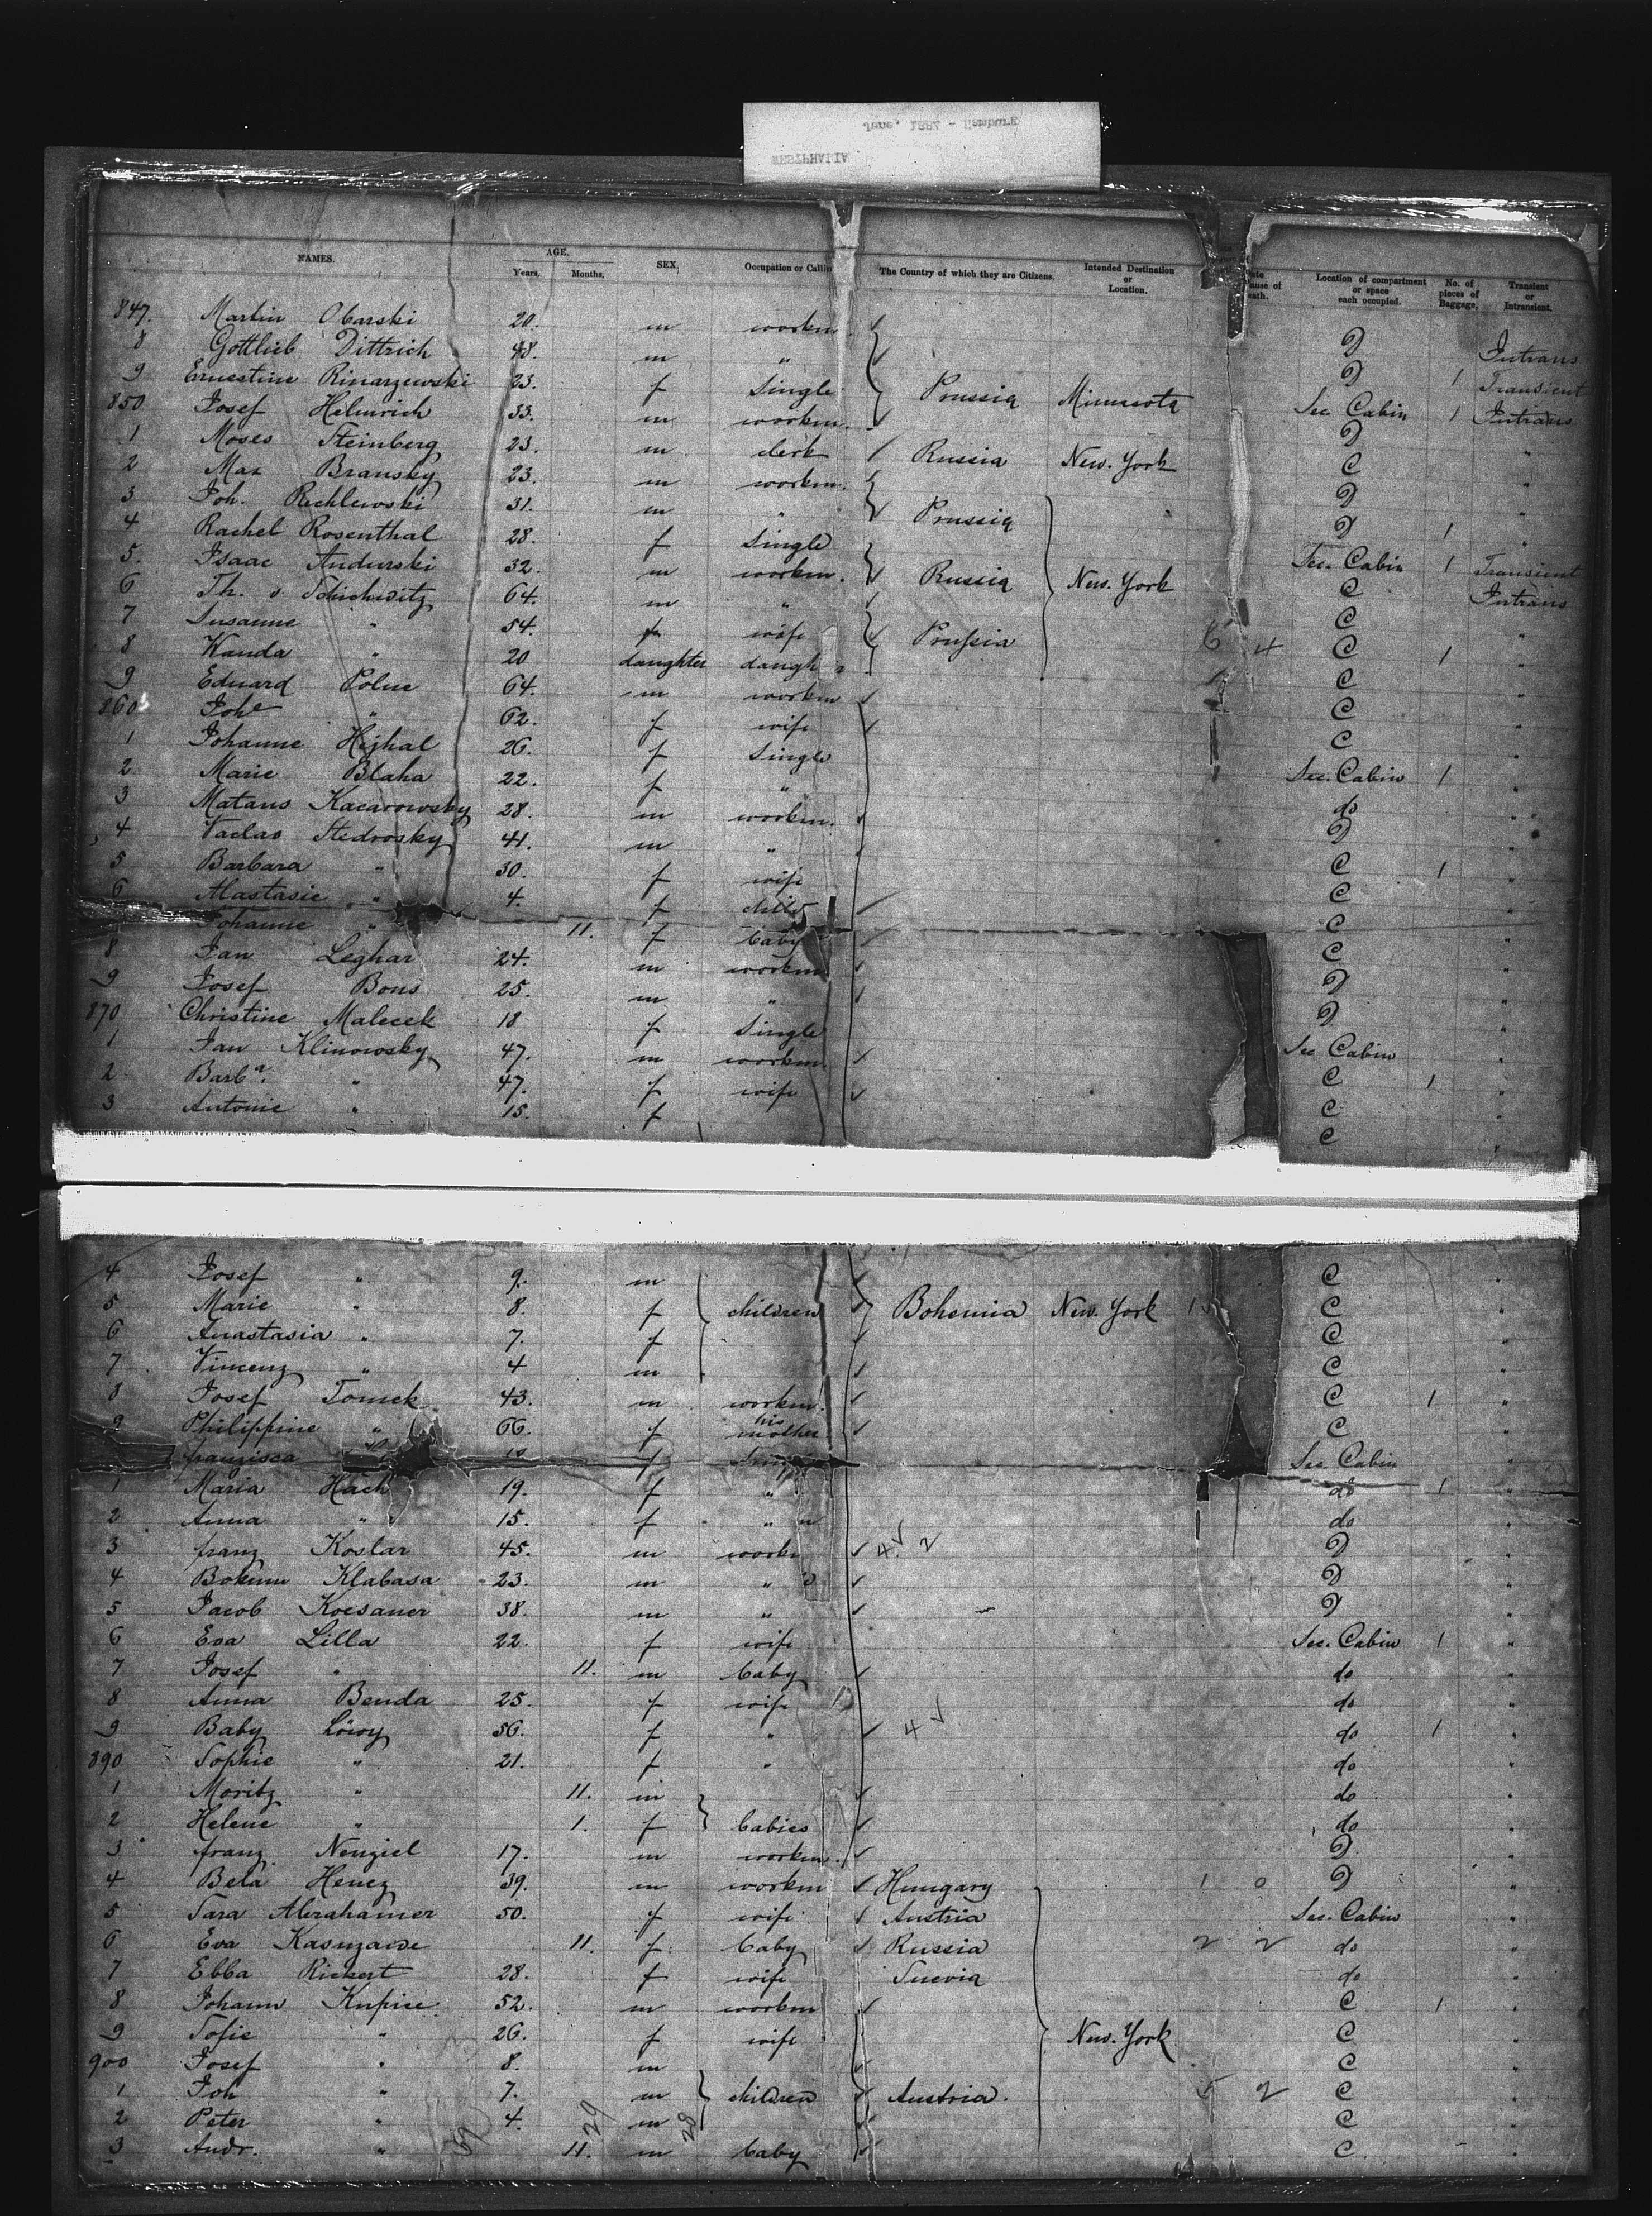 WESTPHALIA
June, 1887 - Hamburg
NAMES. AGE. Years. Months. SEX. Occupation or Callin The Country of which they are Citizens. Intended Destination or Location. ate ause of eath. Location of compartment or space each occupied. No. of pieces of Baggage. Transient or Intransient.
847. Martin Obarski 20. m workm. D Intrans
8 Gottlieb Dittrich 48. m " D 1 Transient
9 Ernestine Rinarzewski 23. f Single Prussia Minnesota Sec. Cabin 1 Intrans
850 Josef Helmrich 33. m workm. D "
1 Moses Steinberg 23. m clerk Russia New. York C "
2 Max Bransky 23. m workm. D "
3 Joh. Rechlewski 31. m " Prussia D 1 "
4 Rachel Rosenthal 28. f Single Sec. Cabin 1 Transient
5. Isaac Andurski 32. m workm. Russia New. York C Intrans
6 Th. v Schichwitz 64. m " C "
7 Susanne " 54. f wife Prussia 6 4 C 1 "
8 Wanda " 20 daughter daugh C "
9 Eduard Polne 64. m workm C "
860 Joh " 62. f wife C "
1 Johanne Hejhal 26. f Single Sec. Cabin 1 "
2 Marie Blaha 22. f " do "
3 Mataus Kacarowsky 28. m workm. D "
4 Vaclav Stedrosky 41. m " C 1 "
5 Barbara " 30. f wife C "
6 Alastasie " 4. f child C "
Johanne " 11. f baby C "
8 Jan Leghar 24. m workm D "
9 Josef Bous 25. m " D "
870 Christine Malecek 18 f Single Sec. Cabin "
1 Jan Klinowsky 47. m workm. C 1 "
2 Barba. " 47. f wife C "
3 Antonie " 15. f C "
4 Josef " 9. m C "
5 Marie " 8. f children Bohemia New. York C "
6 Anastasia " 7. f C "
7 Vincenz " 4 m C "
8 Josef Tomek 43. m workm. C 1 "
9 Philippine " 66. f his mother C "
franzisca " f Sec. Cabin "
1 Maria Hach 19. f " do 1 "
2 Anna " 15. f " do "
3 franz Koslar 45. m workm 4 2 D "
4 Klabasa 23. m " D "
5 Jacob Koesaner 38. m " D "
6 Eva Lilla 22. f wife Sec. Cabin 1 "
7 Josef " 11. m baby do "
8 Anna Benda 25. f wife do "
9 Baby Löwy 56. f " 4 do 1 "
890 Sophie " 21. f " do "
1 Moritz " 11. m do "
2 Helene " 1. f babies do "
3 franz Nenziel 17. m workm. D "
4 Bela Hencz 39. m workm Hungary 1 0 D "
5 Sara Abrahamer 50. f wife Austria Sec. Cabin "
6 Eva Kasuzawe 11. f. baby Russia 2 2 do "
7 Ebba Rickert 28. f wife Suevia do "
8 Johann Knpice 52. m workm C 1 "
9 Sofie " 26. f wife New. York C "
900 Josef " 8. m C "
1 Joh " 7. m children Austria. 5 2 C "
2 Peter " 4. m C "
3 Andr. " 11. m baby C "
29 28